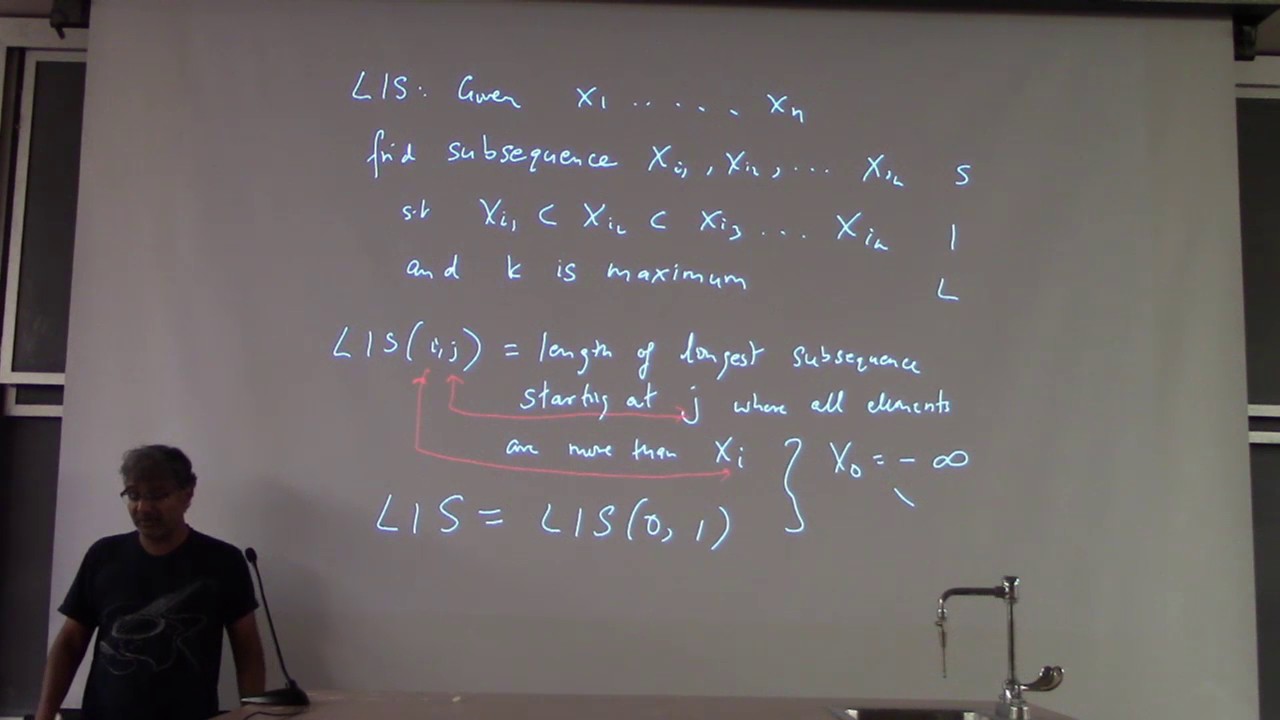 LIS: Given x₁ ..... xₙ
find subsequence Xᵢ₁, Xᵢ₂, ... Xᵢₖ S
s.t Xᵢ₁ < Xᵢ₂ < Xᵢ₃ ... Xᵢₖ I
and k is maximum L
LIS(i,j) = length of longest subsequence
starting at j where all elements
are more than Xᵢ } X₀ = - ∞
LIS = LIS(0, 1)